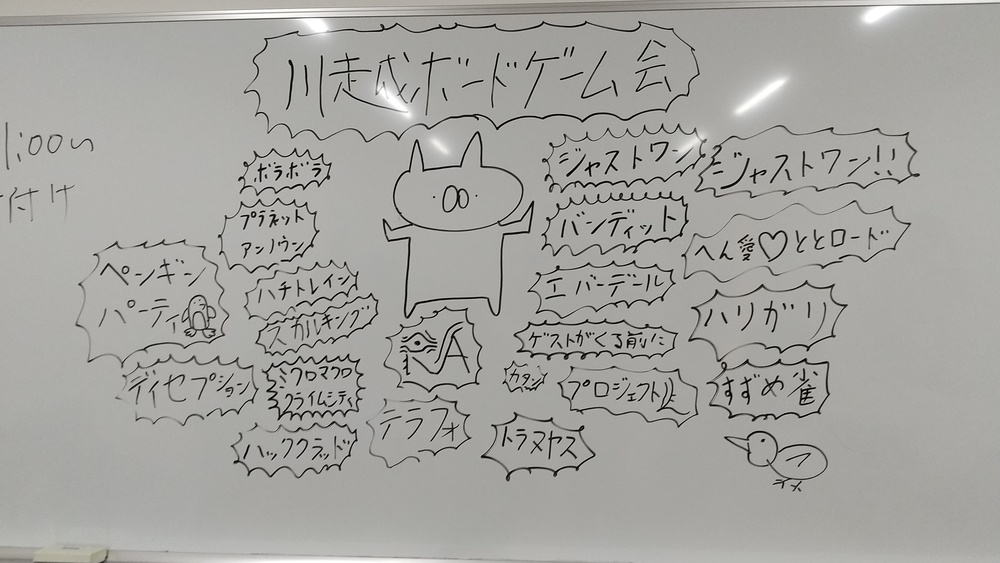 川越ボードゲーム会
1:00〜
付け
ボラボラ
プラネット
アンノウン
ペンギン
パーティ
ハチトレイン
スカルキング
ディセプション
ミクロマクロ
クライムシティ
ハッククラッド
RA
テラフォ
ジャストワン
バンディット
エバーデール
ゲストがくる前に
カタン
プロジェクトL
トラヌヤス
ジャストワン!!
へん愛♡ととロード
ハリガリ
すずめ雀